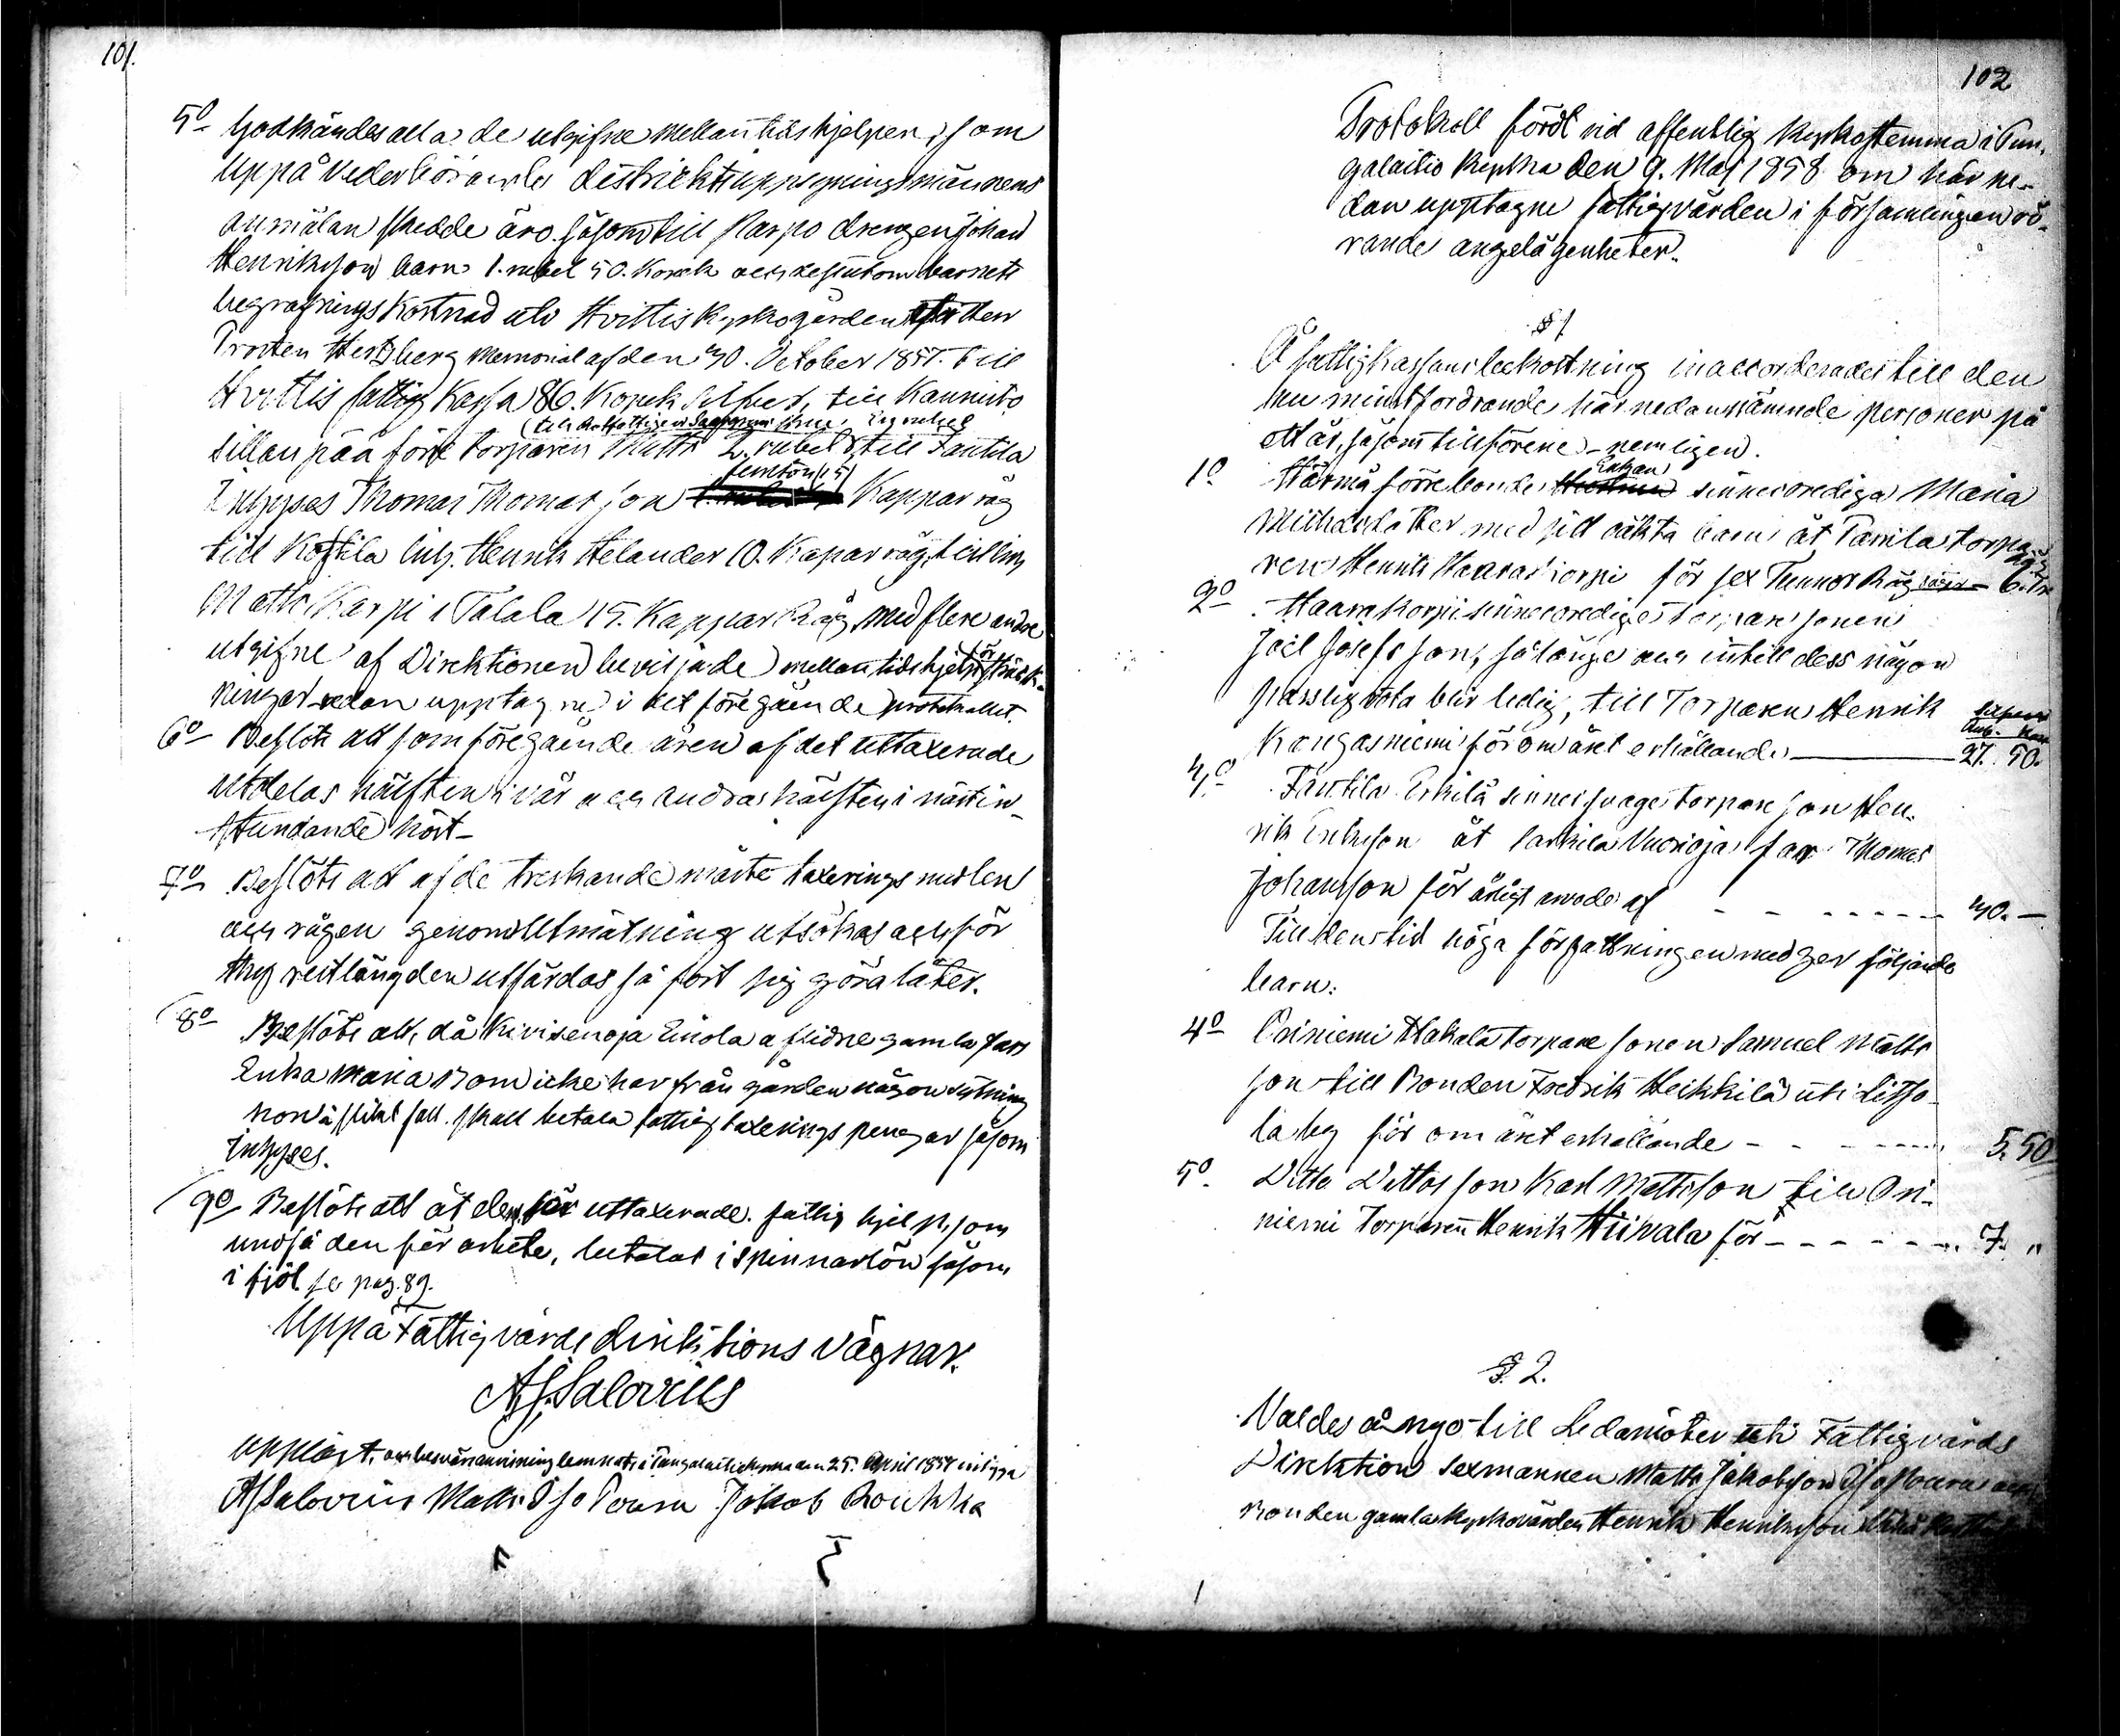 101.
5º Godkändes alla de utgifne mellantids hjelpen, som
uppå vederbörande districktsuppsyningsmännens
anmälan skedde äro såsom till Karpo drengen Johan
Henriksson barn 1. rubel 50. Kopek och dessutom barnets
begrafnings kostnad uti Hvittis Kyrkogården efter Herr
Prosten Hertzberg Memorial af den 30. October 1857. till
Hvittis fattig Kassa 86. Kopek Silfver, till Kannisto
(till Rotfattigen en rubel
sillanpää förre torparen Matts 2. rubel till Tantila
femton (15)
Inhyses Thomas Thomasson Kappar råg
till Kottila inh. Henrik Helander 10. Kapar råg, till inh
Matts Karpi i Talala 15. Kappar Råg, med flere andre
utgifne af Direktionen beviljade mellantids hjelp
ningar redan upptagne i det föregående protokollet.
6º Beslöts att som föregående åren af det uttaxerade
utdelas hälften i vår och andra hälften i nästin-
stundande höst-
7º Beslöts att af de treskande måste taxerings medlen
och rågen genom Utmätning utsökas och för
thy restlängden utfärdas så fort sig göra låter.
8º Beslöts att, då Kivisenoja Einola aflidne gamla fars
Enka Maria som icke har från gården någon sytning
hon i slikt fall skall betala fattig taxerings pengar såsom
Inhyses.
9º Beslöts att åt dem för uttaxerade fattig hjelp, som
undfå den för arbete, betalas i spinnarlön såsom
i fjol se pag. 89.
Uppå Fattigvårds direktions vägnar.
A. J. Salovius
Upplöst, och besvärsanvisning lemnats i Pungalaitio kyrka den 25. April 1858 intyga
AJ Salovius Matts Iso Poura Jakob Roukka
102
Protokoll fördt vid offentlig Kyrkostemma i Pun-
galaitio Kyrka den 9. Maj 1858 om här ne-
dan upptagne fattigvården i församlingen rö-
rande angelägenheter.
§ 1
Å fattigkassans bekostning inaccorderades till den
nu minstfordrande här nedannämnde personer på
ett år, såsom tillförene - nemligen.
1º Härmä förre bonde Enkan sinnesvrediga Maria
Michaelsdotter med sitt oäkta barn åt Tanila torpa-
ren Henrik Haarakorpi för sex Tunnor Råg 6. Tr
2º Haarakorpi sinnesvredige torpare sonen
Joel Josefsson, så länge och intill dess någon
passlig rota blir ledig, till Torparen Henrik
Silfver
Rub. Kop
Kangasniemi för om året erhållande 27. 50.
3º Tantila Erkilä sinnessvage torpare son Hen-
rik Eriksson åt Sarkila Vuorioja far Thomas
Johansson för årligt arvode af 30. —
Till dens tid höga författningen medger följande
barn:
4º Oriniemi Hakala torpare sonen Samuel Matts
son till Bonden Fredrik Heikkilä uti Liso-
la by för om året erhållande 5. 50
5º Ditto Dittos son Karl Mattsson till Ori-
niemi Torparen Henrik Hiivala för 7. "
§ 2.
Valdes å nyo till Ledamöter uti Fattigvårds
Direktion sexmannen Matts Jakobsson Iso Poura och
Bonden gamla kyrkovärden Henrik Henriksson